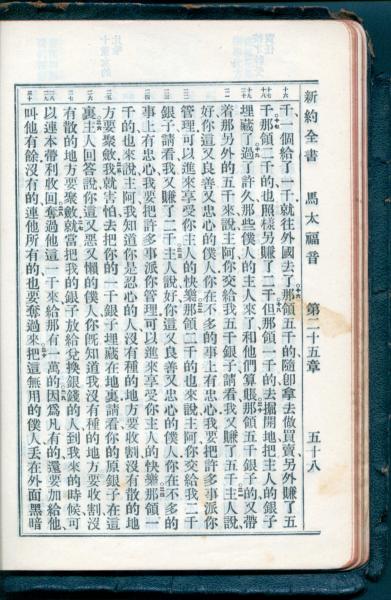 新約全書　馬太福音　第二十五章　五十八
千、一個給了一千就往外國去了那領五千的隨卽拿去做買賣另外賺了五
千那領二千的也照樣另賺了二千但那領一千的去掘開地把主人的銀子
埋藏了過了許久那些僕人的主人來了和他們算賬那領五千銀子的又帶
着那另外的五千來說主阿你交給我五千銀子請看我又賺了五千主人說、
好你這又良善又忠心的僕人你在不多的事上有忠心我要把許多事派你
管理可以進來享受你主人的快樂那領二千的也來說主阿你交給我二千
銀子請看我又賺了二千主人說好你這又良善又忠心的僕人你在不多的
事上有忠心我要把許多事派你管理可以進來享受你主人的快樂那領一
千的也來說主阿我知道你是忍心的人沒有種的地方要收割沒有散的地
方要聚斂我就害怕去把你的一千銀子埋藏在地裏請看你的原銀子在這
裏主人回答說你這又惡又懶的僕人你旣知道我沒有種的地方要收割沒
有散的地方要聚斂就當把我的銀子放給兌換銀錢的人到我來的時候可
以連本帶利收回奪過他這一千來給那有一萬的因爲凡有的還要加給他
叫他有餘沒有的連他所有的也要奪過來把這無用的僕人丟在外面黑暗